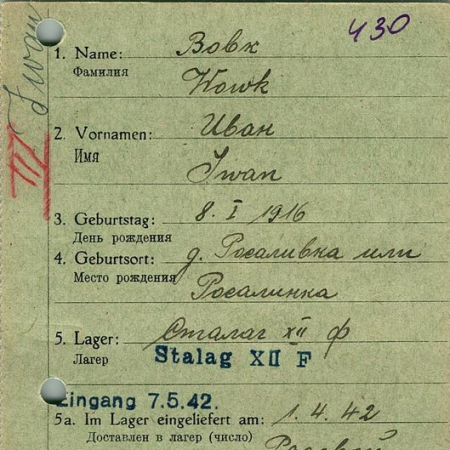 430
Iwan
1. Name: Вовк
Фамилия
Wowk
III
2. Vornamen: Иван
Имя
Iwan
3. Geburtstag: 8. I 1916
День рождения
4. Geburtsort: д. Росаливка или
Место рождения
Росалинка
5. Lager: Сталаг XII Ф
Лагер
Stalag XII F
Eingang 7.5.42.
5a. Im Lager eingeliefert am: 1.4.42
Доставлен в лагер (число)